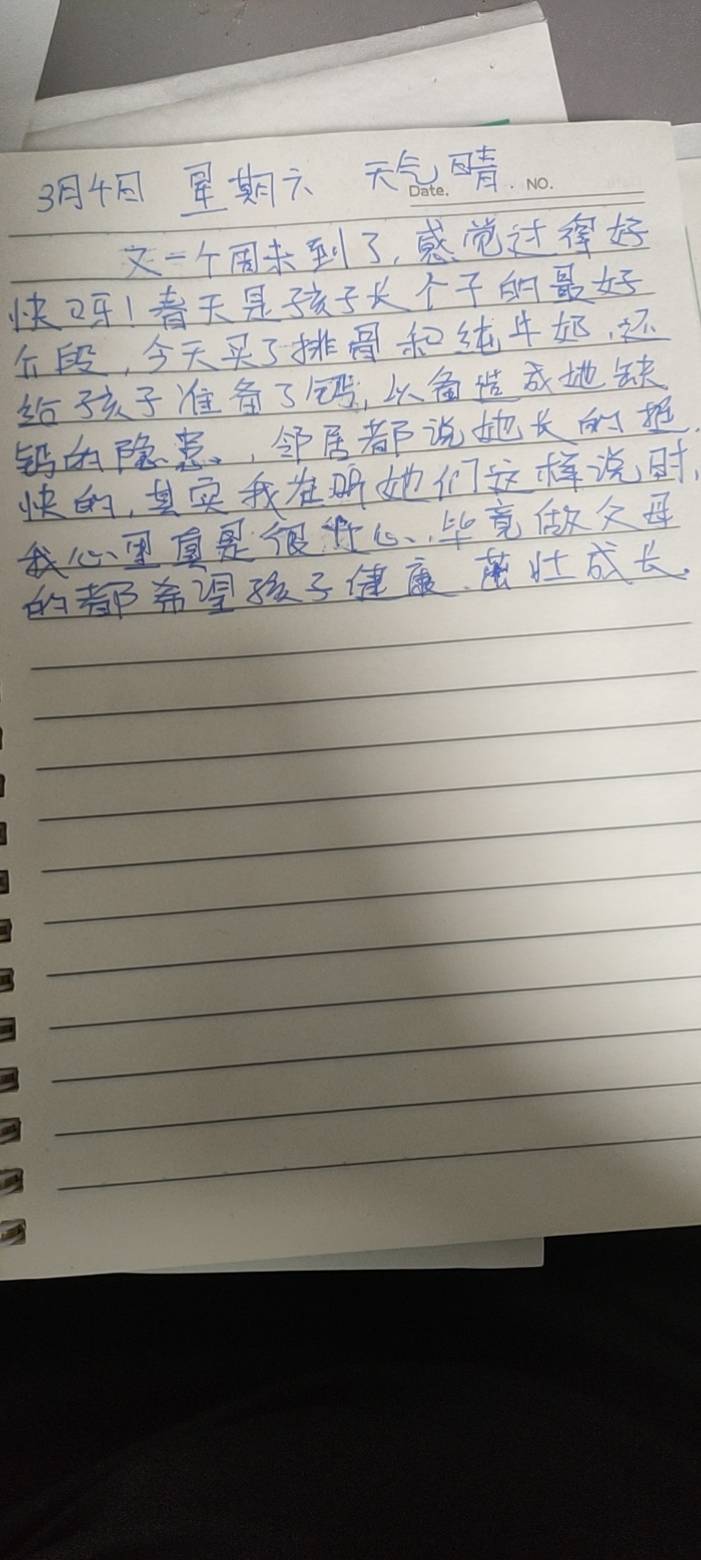 3月4日 星期六 天气晴
Date. NO.
又一个周末到了,感觉过得好
快呀!春天是孩子长个子的最好
阶段,今天买了排骨和纯牛奶,还
给孩子准备了钙,以备造成她缺
钙的隐患,邻居都说她长的挺
快的,其实我在听她们这样说时,
我心里真是很开心,毕竟做父母
的都希望孩子健康、茁壮成长.